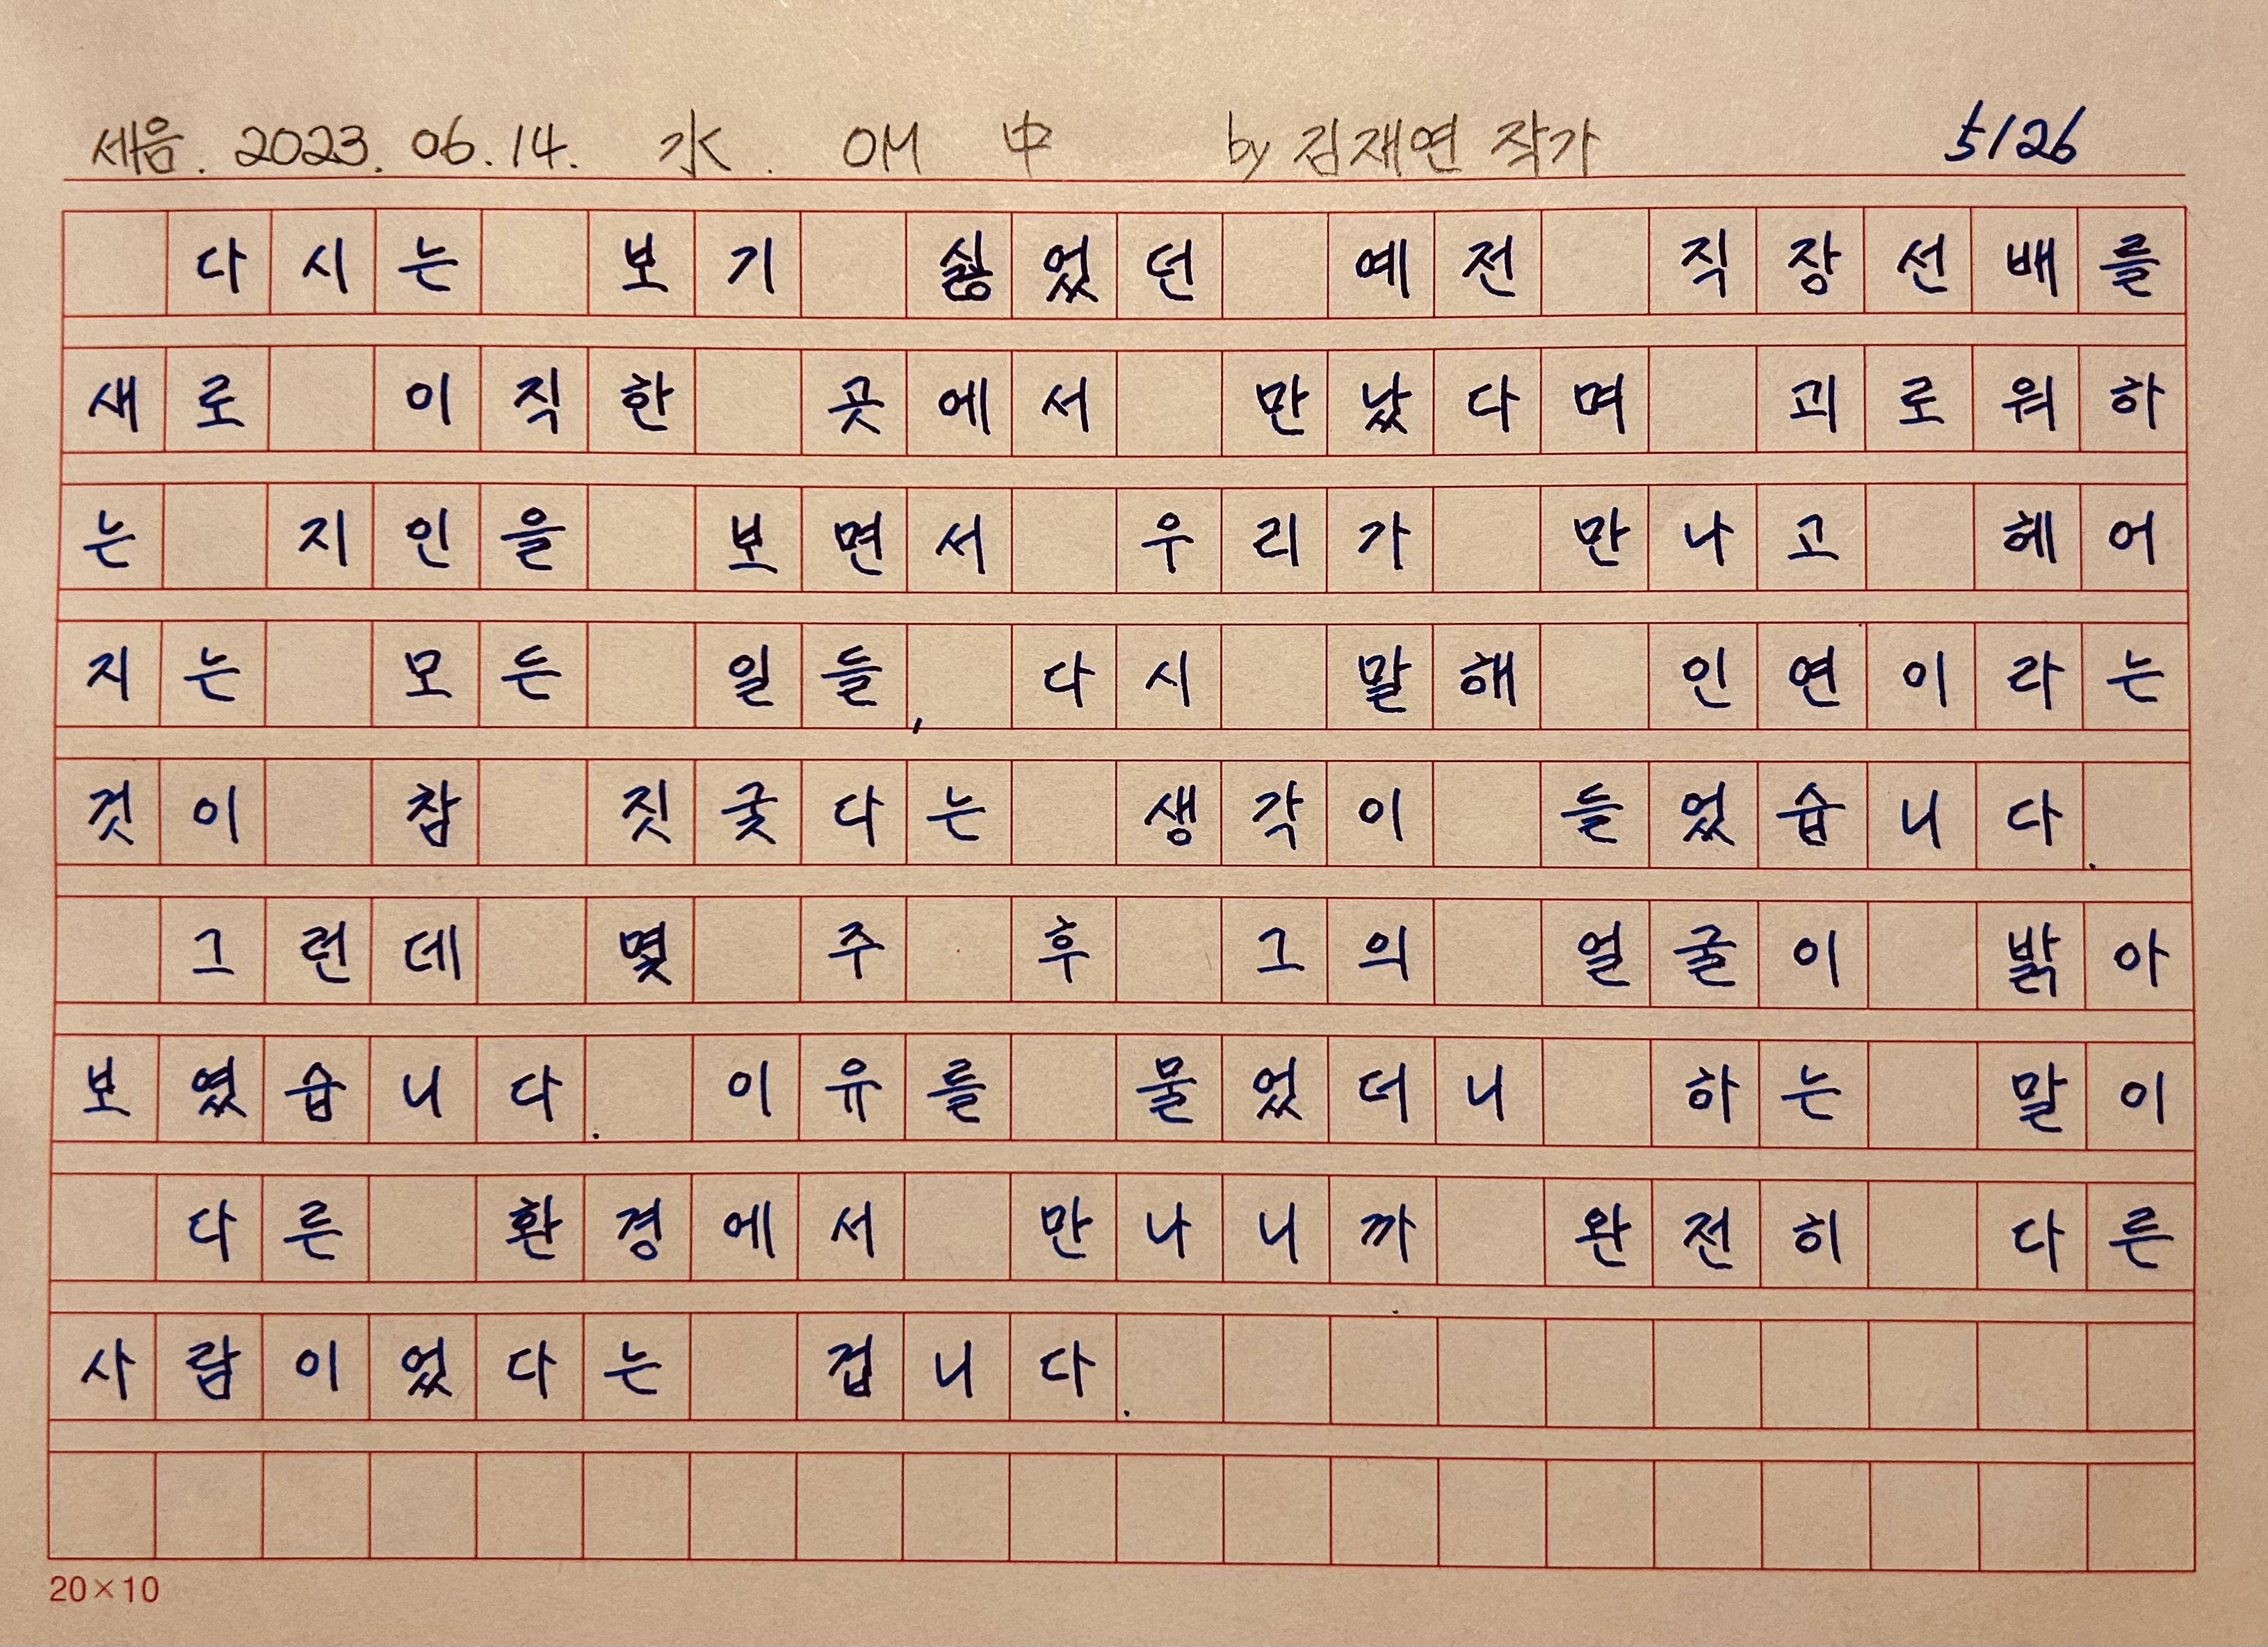 세음. 2023. 06. 14. 水. OM 中 by 김재연 작가 5/26
다시는 보기 싫었던 예전 직장선배를
새로 이직한 곳에서 만났다며 괴로워하
는 지인을 보면서 우리가 만나고 헤어
지는 모든 일들, 다시 말해 인연이라는
것이 참 짓궂다는 생각이 들었습니다.
그런데 몇 주 후 그의 얼굴이 밝아
보였습니다. 이유를 물었더니 하는 말이
다른 환경에서 만나니까 완전히 다른
사람이었다는 겁니다.
20×10